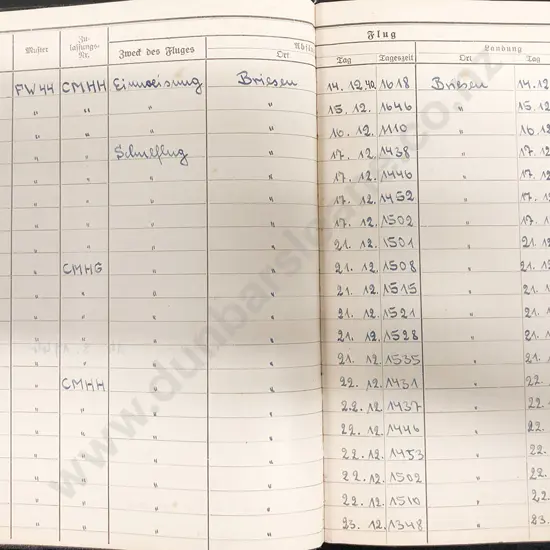 Flug
Muster Zu- lassungs- Nr. Zweck des Fluges Ort Tag Tageszeit Landung Ort Tag
FW44 CMHH Einweisung Briesen 14. 12.40 1618 Briesen 14.12
" " " " 15. 12. 1646 " 15.12
" " " " 16. 12. 1110 " 16.12
" " Schulflug " 17. 12. 1438 " 17.12
" " " " 17. 12. 1446 " 17.12
" " " " 17. 12. 1452 " 17.12
" " " " 17. 12. 1502 " 17.12
" " " " 21. 12. 1501 " 21.12
" CMHG " " 21. 12. 1508 " 21.12
" " " " 21. 12. 1515 " 21.12
" " " " 21. 12. 1521 " 21.12
" " " " 21. 12. 1528 " 21.
" " " " 21. 12. 1535 " 21.
" CMHH " " 22. 12. 1431 " 22.
" " " " 22. 12. 1437 " 22.
" " " " 22. 12. 1446 " 22.
" " " " 22. 12. 1453 " 22.
" " " " 22. 12. 1502 " 22.
" " " " 22. 12. 1510 " 22.
" " " " 23. 12. 1348 " 23.
www.dunbarsloane.co.nz